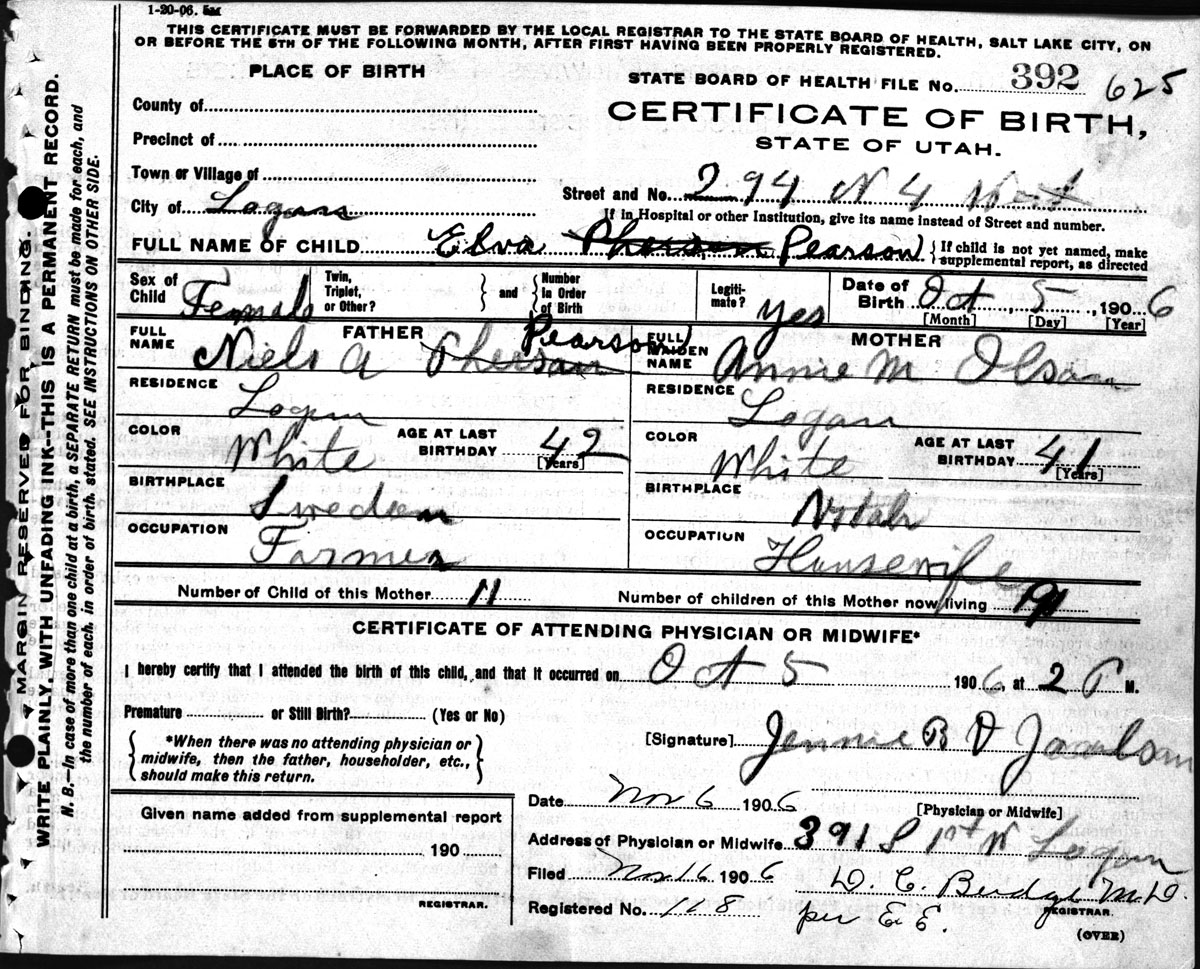 1-20-06.
THIS CERTIFICATE MUST BE FORWARDED BY THE LOCAL REGISTRAR TO THE STATE BOARD OF HEALTH, SALT LAKE CITY, ON
OR BEFORE THE 5TH OF THE FOLLOWING MONTH, AFTER FIRST HAVING BEEN PROPERLY REGISTERED.
MARGIN RESERVED FOR BINDING.
WRITE PLAINLY, WITH UNFADING INK--THIS IS A PERMANENT RECORD.
N. B.—In case of more than one child at a birth, a SEPARATE RETURN must be made for each, and
the number of each, in order of birth, stated. SEE INSTRUCTIONS ON OTHER SIDE.
PLACE OF BIRTH
STATE BOARD OF HEALTH FILE No. 392 625
County of
CERTIFICATE OF BIRTH,
Precinct of
STATE OF UTAH.
Town or Village of
Street and No. 294 N 4 West
City of Logan
If in Hospital or other Institution, give its name instead of Street and number.
FULL NAME OF CHILD Elva Pherson Pearson { If child is not yet named, make supplemental report, as directed
Sex of Child Female Twin, Triplet, or Other? } and { Number in Order of Birth Legiti-mate? Yes Date of Birth Oct, 5, 1906
[Month] [Day] [Year]
FATHER
FULL NAME Niels A Pherson Pearson
MOTHER
FULL MAIDEN NAME Annie M Olson
RESIDENCE Logan
RESIDENCE Logan
COLOR White AGE AT LAST BIRTHDAY 42 [Years]
COLOR White AGE AT LAST BIRTHDAY 41 [Years]
BIRTHPLACE Sweden
BIRTHPLACE Utah
OCCUPATION Farmer
OCCUPATION Housewife
Number of Child of this Mother 11 Number of children of this Mother now living
CERTIFICATE OF ATTENDING PHYSICIAN OR MIDWIFE*
I hereby certify that I attended the birth of this child, and that it occurred on Oct 5 1906, at 2 P M.
Premature or Still Birth? (Yes or No)
{ *When there was no attending physician or midwife, then the father, householder, etc., should make this return. }
[Signature] Jennie B
[Physician or Midwife]
Date Nov 6 1906
Address of Physician or Midwife 391 S 1st W Logan
Filed Nov 16 1906 D. C. Budge M.D.
REGISTRAR.
Registered No. 118 per E.E.
(OVER)
Given name added from supplemental report
190
REGISTRAR.